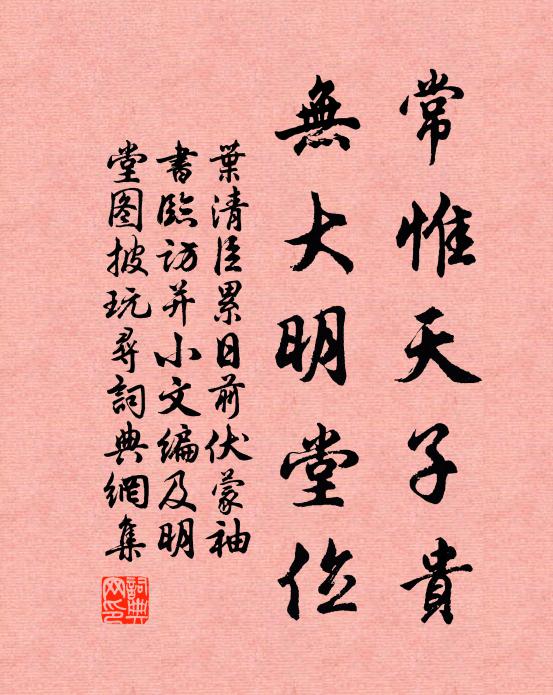 常惟天子貴
無大明堂位
葉清臣累日前伏蒙袖
書臨訪并小文編及明
堂图披玩尋詞典網集
詞典网印